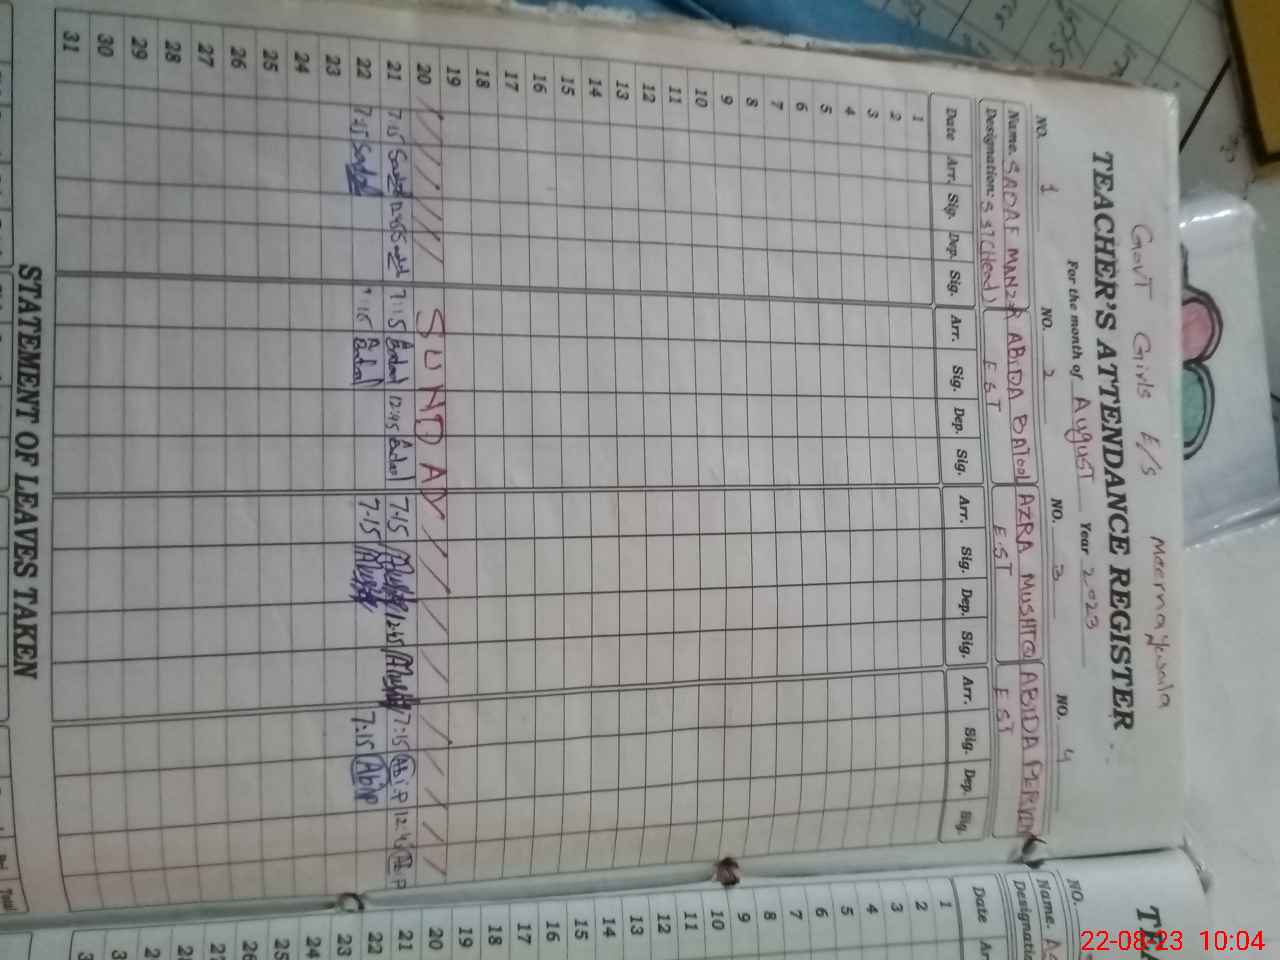 GovT Girls E/S
TEACHER'S ATTENDANCE REGISTER
For the month of August Year 2023
NO. 1 NO. 2 NO. 3 NO. 4
Name. SADAF MANZOR ABIDA BATOOL AZRA MUSHTQ ABIDA PERVEN
Designation: SST (Head) EST E.ST EST
Date Arr. Sig. Dep. Sig. Arr. Sig. Dep. Sig. Arr. Sig. Dep. Sig. Arr. Sig. Dep. Sig.
1
2
3
4
5
6
7
8
9
10
11
12
13
14
15
16
17
18
19
20 SUNDAY
21 7:15 12:45 7:15 Batool 12:45 Batool 7:15 12:45 7:15 Abi.P 12:45 Abi.P
22 7:15 7:15 Batool 7:15 7:15 Abi.P
23
24
25
26
27
28
29
30
31
STATEMENT OF LEAVES TAKEN
TEA
NO.
Name. AS
Designatio
Date Ar
1
2
3
4
5
6
7
8
9
10
11
12
13
14
15
16
17
18
19
20
21
22
23
24
25
26
27
22-08-23 10:04